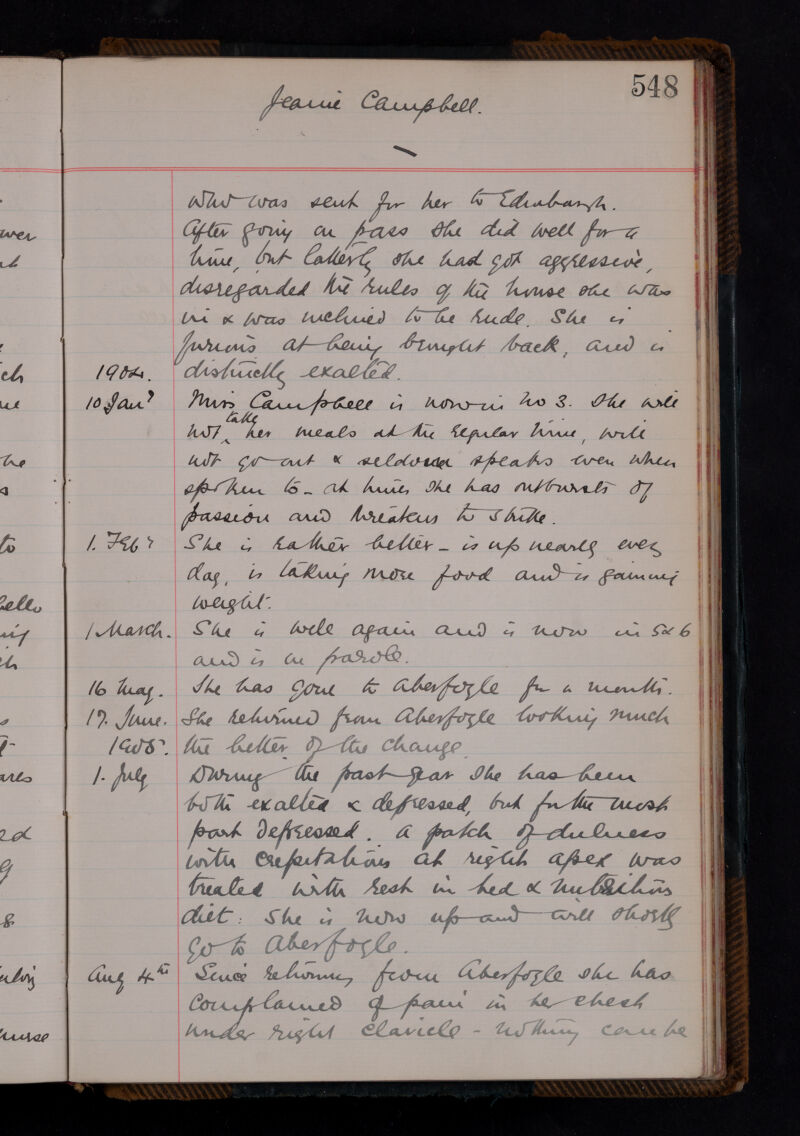 548
Jeanie Campbell.
who was sent for her to Edinburgh.
After going on pass she did well for a
time, but latterly she had got aggressive,
disregarded the rules of the house she was
in & was inclined to be rude. She is
furious at being brought back, and is
1904. distinctly exalted.
10 Jany Miss Campbell is now in No 3. She will
not take her meals at the regular time, will
not go out & seldom speaks even when
spoken to - at times she has outbursts of
passion and threatens to strike.
1. Feby She is rather better - is up nearly every
day, is taking more food and is gaining
weight.
1 March. She is well again and is now in 5 & 6
and is on parole.
16 May. She has gone to Aberfoyle for a month.
17. June. She returned from Aberfoyle looking much
1905. the better of the change.
1. July During the past year she has been
both exalted & depressed, but for the most
part depressed. A patch of dulness
with crepitations at right apex was
treated with rest in bed & nutritious
diet: She is now up and will shortly
go to Aberfoyle.
Aug 4th Since returning from Aberfoyle she has
complained of pain in her chest
under right clavicle - nothing can be